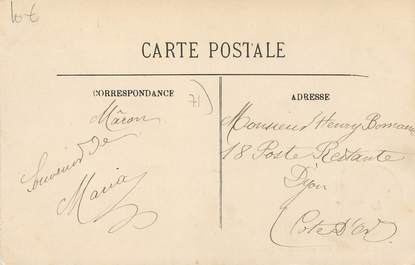 10€
CARTE POSTALE
CORRESPONDANCE
71
Mâcon
Souvenir de
Maria
ADRESSE
Monsieur Henry
18 Poste Restante
Dijon
Cote D'or